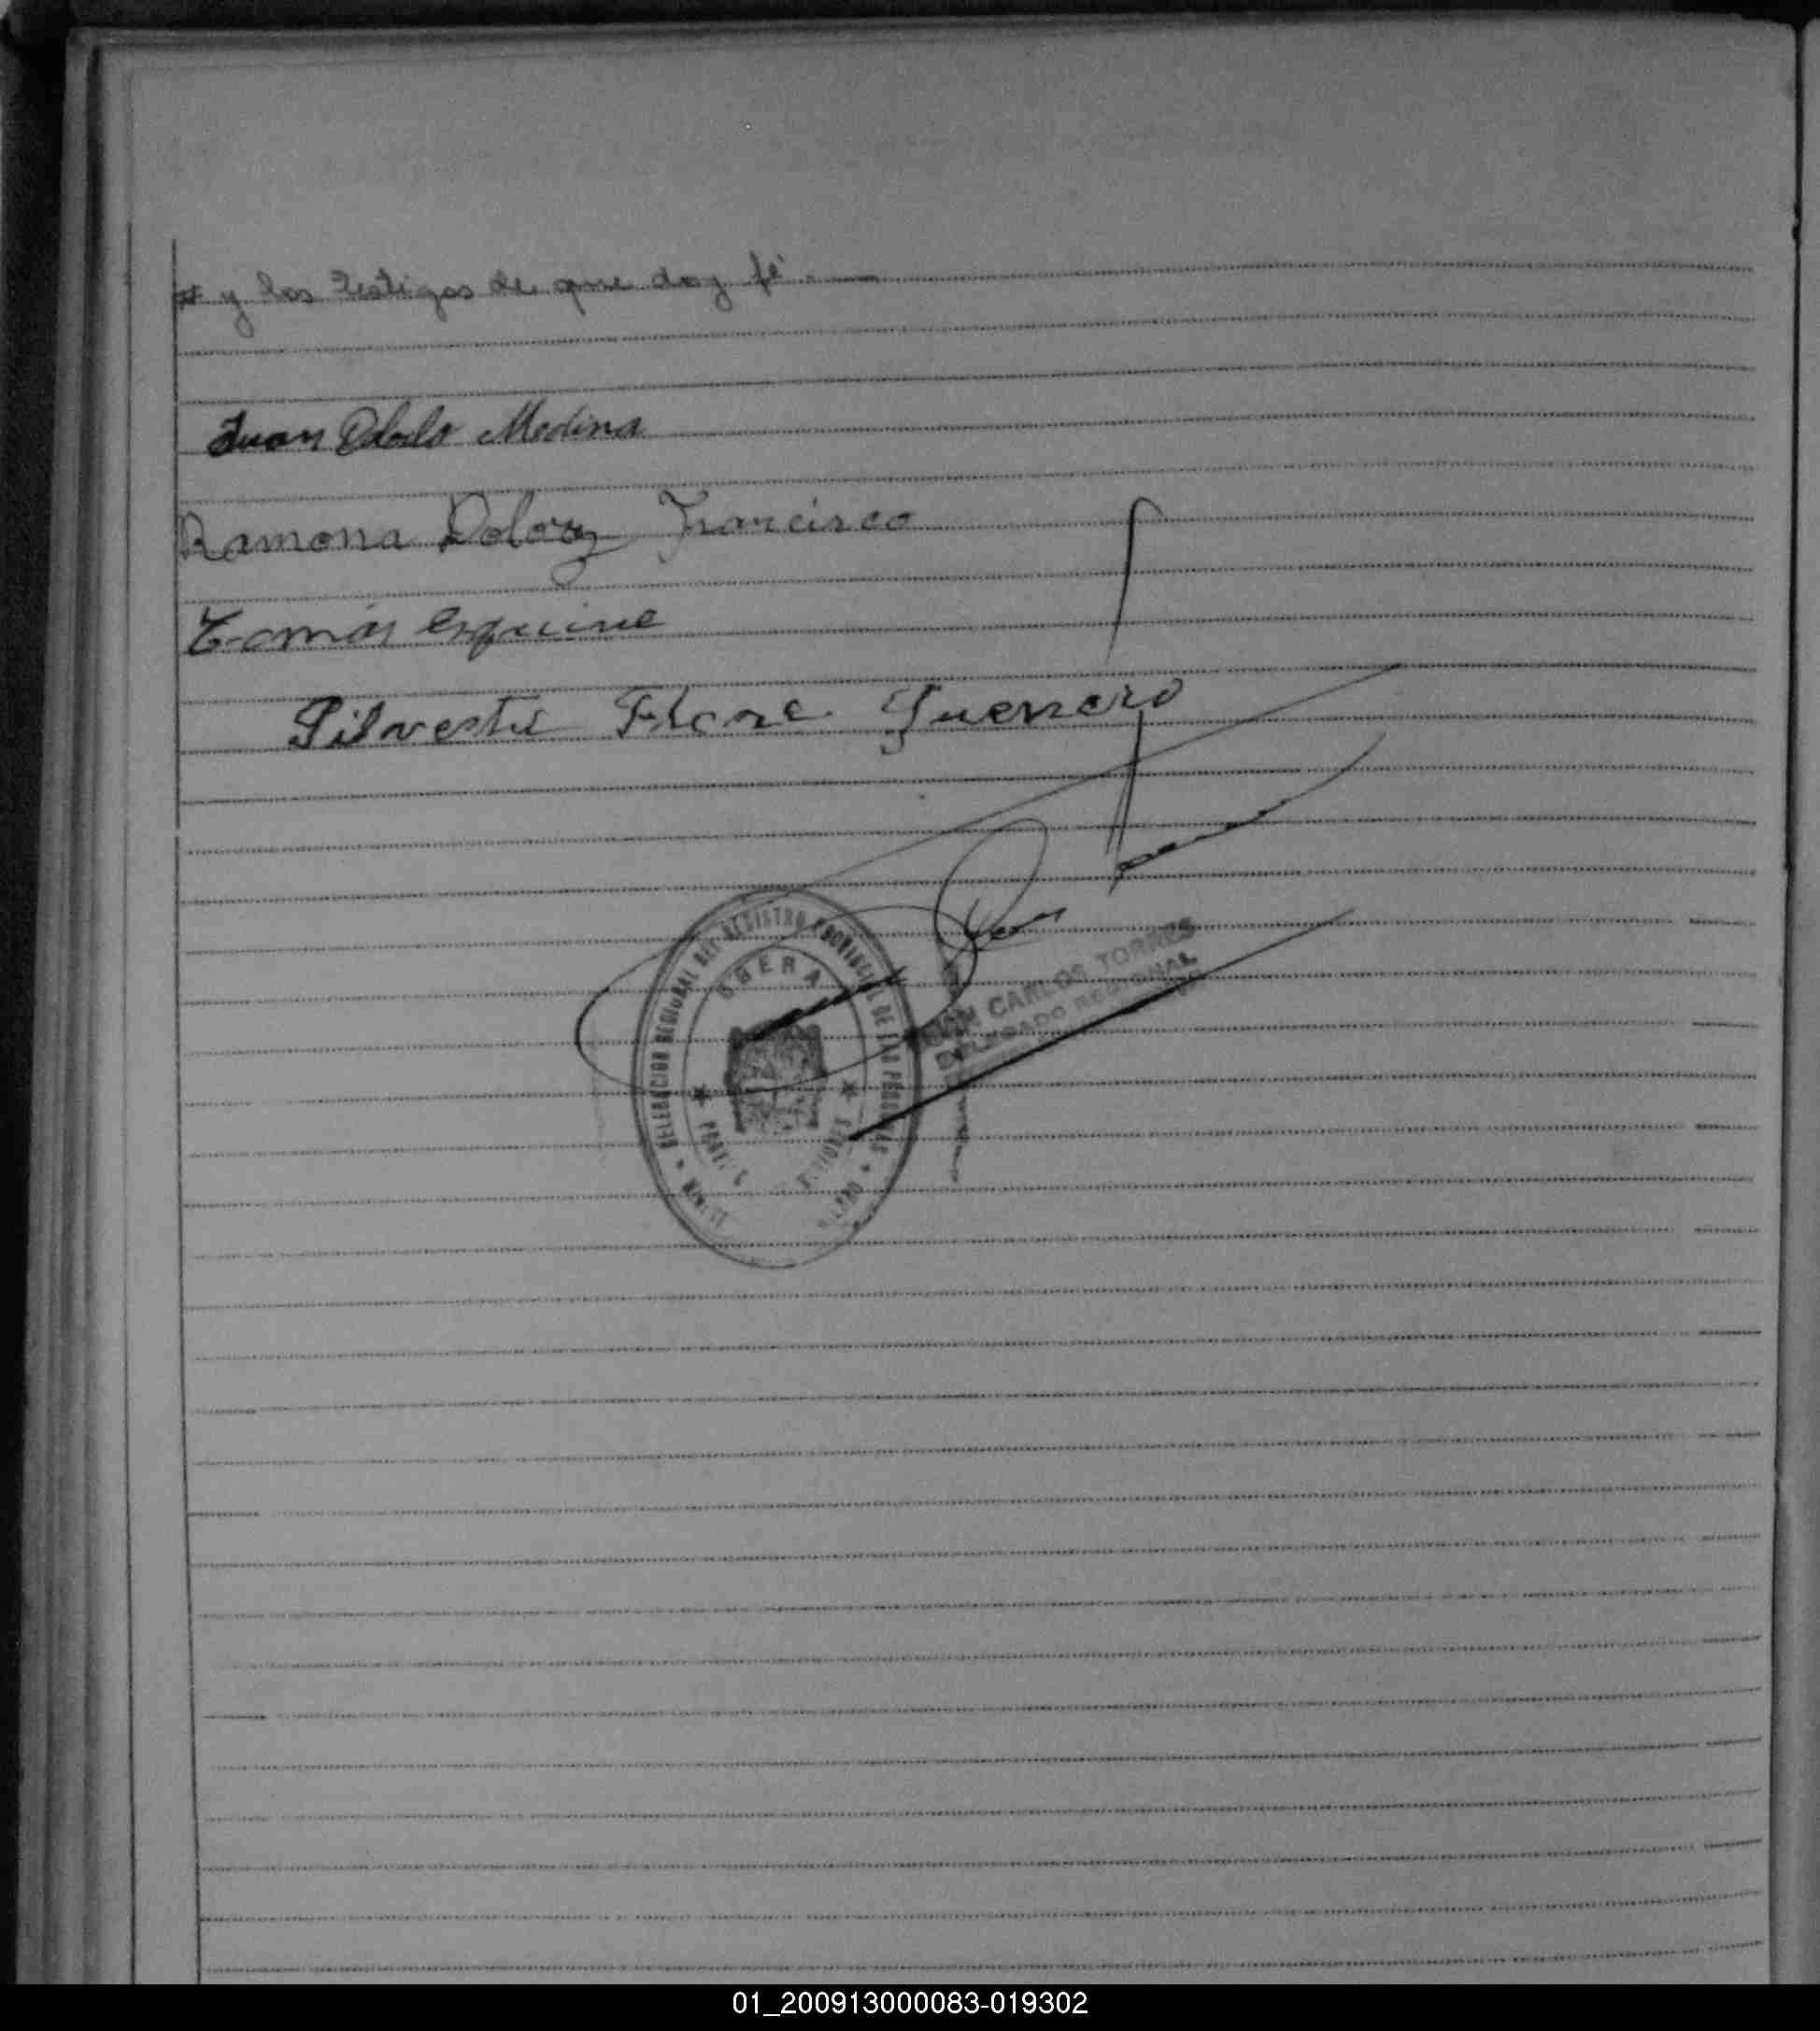 # y los testigos de que doy fé.
Juan Pablo Medina
Ramona Dolorez Francisco
Tomás esquive
Silvestre Flore Guerrero
DELEGACION REGIONAL DEL REGISTRO PROVINCIAL DE LAS PERSONAS
OBERA
JUAN CARLOS TORRES
DELEGADO REGIONAL
01_200913000083-019302